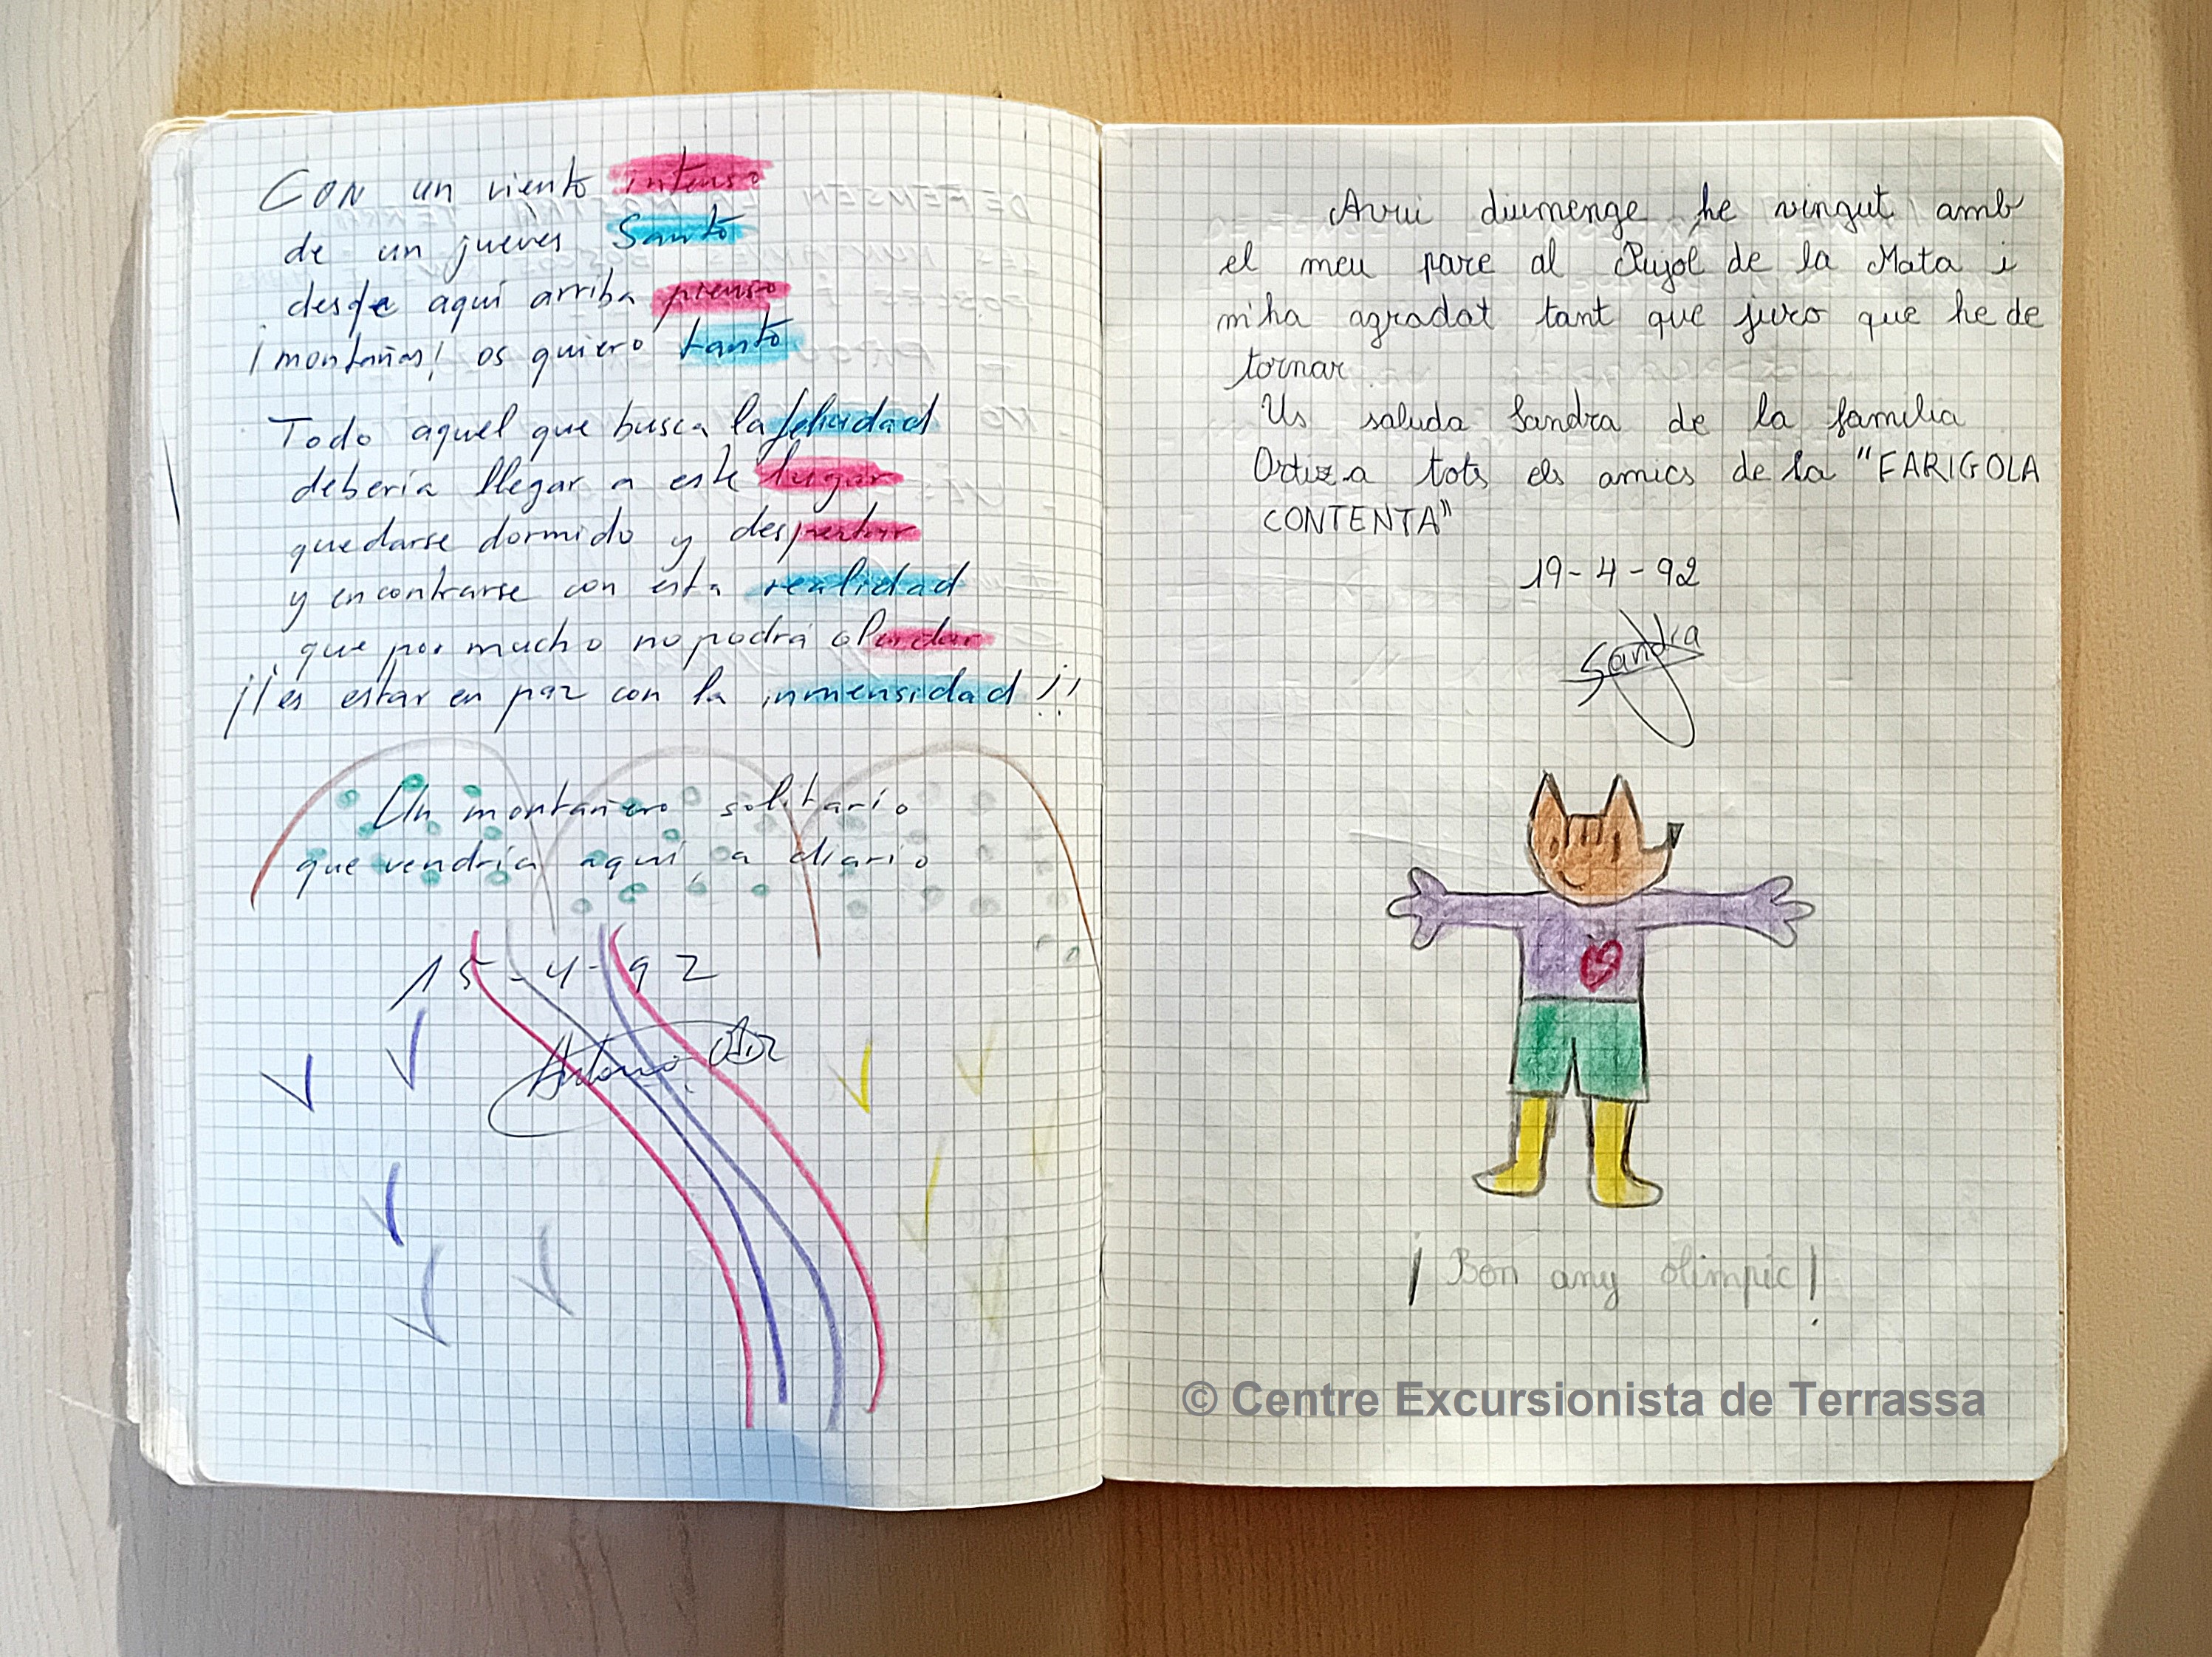 CON un viento intenso
de un jueves Santo
desde aquí arriba pienso
¡montañas! os quiero tanto
Todo aquel que busca la felicidad
debería llegar a este lugar
quedarse dormido y despertar
y encontrarse con esta realidad
que por mucho no podrá olvidar
¡¡es estar en paz con la inmensidad!!
Un montañero solitario
que vendría aquí, a diario
15-4-92
Antonio
Avui diumenge he vingut amb
el meu pare al Pujol de la Mata i
m'ha agradat tant que juro que he de
tornar.
Us saluda Sandra de la familia
Ortiz a tots els amics de la "FARIGOLA
CONTENTA"
19-4-92
Sandra
¡Bon any olimpic!
© Centre Excursionista de Terrassa